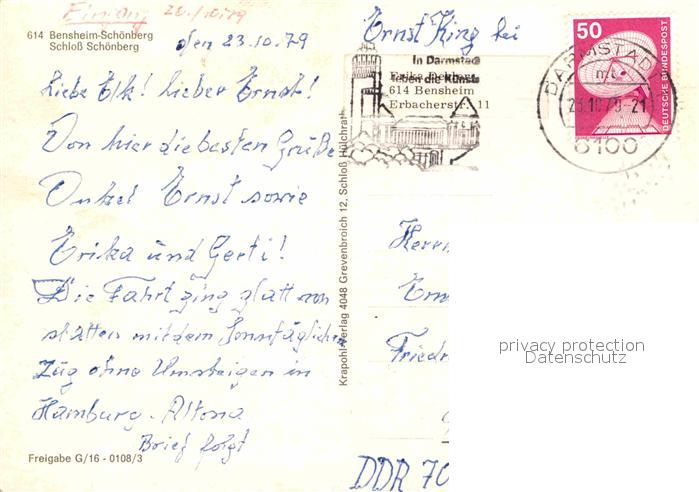 Eingang 26./10.79
614 Bensheim-Schönberg
Schloß Schönberg
den 23.10.79
Liebe Elk! lieber Ernst!
Von hier die besten Grüße
Onkel Ernst sowie
Erika und Gerti!
Die Fahrt ging glatt von
statten mit dem Sonntäglichen
Zug ohne Umsteigen in
Hamburg-Altona
Brief folgt
Freigabe G/16 - 0108/3
Krapohl-Verlag 4048 Grevenbroich 12, Schloß Hülchrath
Ernst King bei
In Darmstadt
leben die Künste
Erika
614 Bensheim
Erbacherstr. 11
50
DEUTSCHE BUNDESPOST
DARMSTADT
23.10.79-21
6100
Herrn
Ern
Friedr
DDR 70
privacy protection
Datenschutz